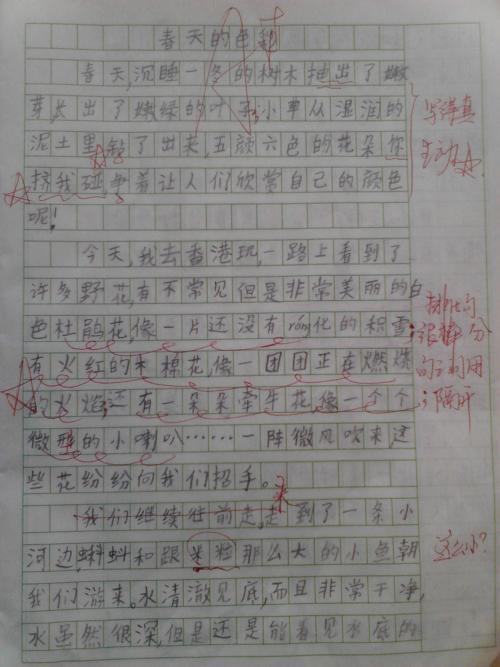 春天的色彩
春天,沉睡一冬的树木抽出了嫩
芽,长出了嫩绿的叶子;小草从湿润的
泥土里钻了出来,五颜六色的花朵你
挤我碰争着让人们欣常自己的颜色
呢!
写得真
生动
今天,我去香港玩,一路上看到了
许多野花,有不常见但是非常美丽的白
色杜鹃花,像一片还没有róng化的积雪;
有火红的木棉花,像一团团正在燃烧
的火焰;还有一朵朵牵牛花,像一个个
微型的小喇叭……一阵微风吹来,这
些花纷纷向我们招手。
排比句
很棒 分
句之间用
;隔开
我们继续往前走,走到了一条小
来
河边,蝌蚪和跟米粒那么大的小鱼朝
这么小?
我们游来。水清澈见底,而且非常干净,
水虽然很深,但是还是能看见水底的